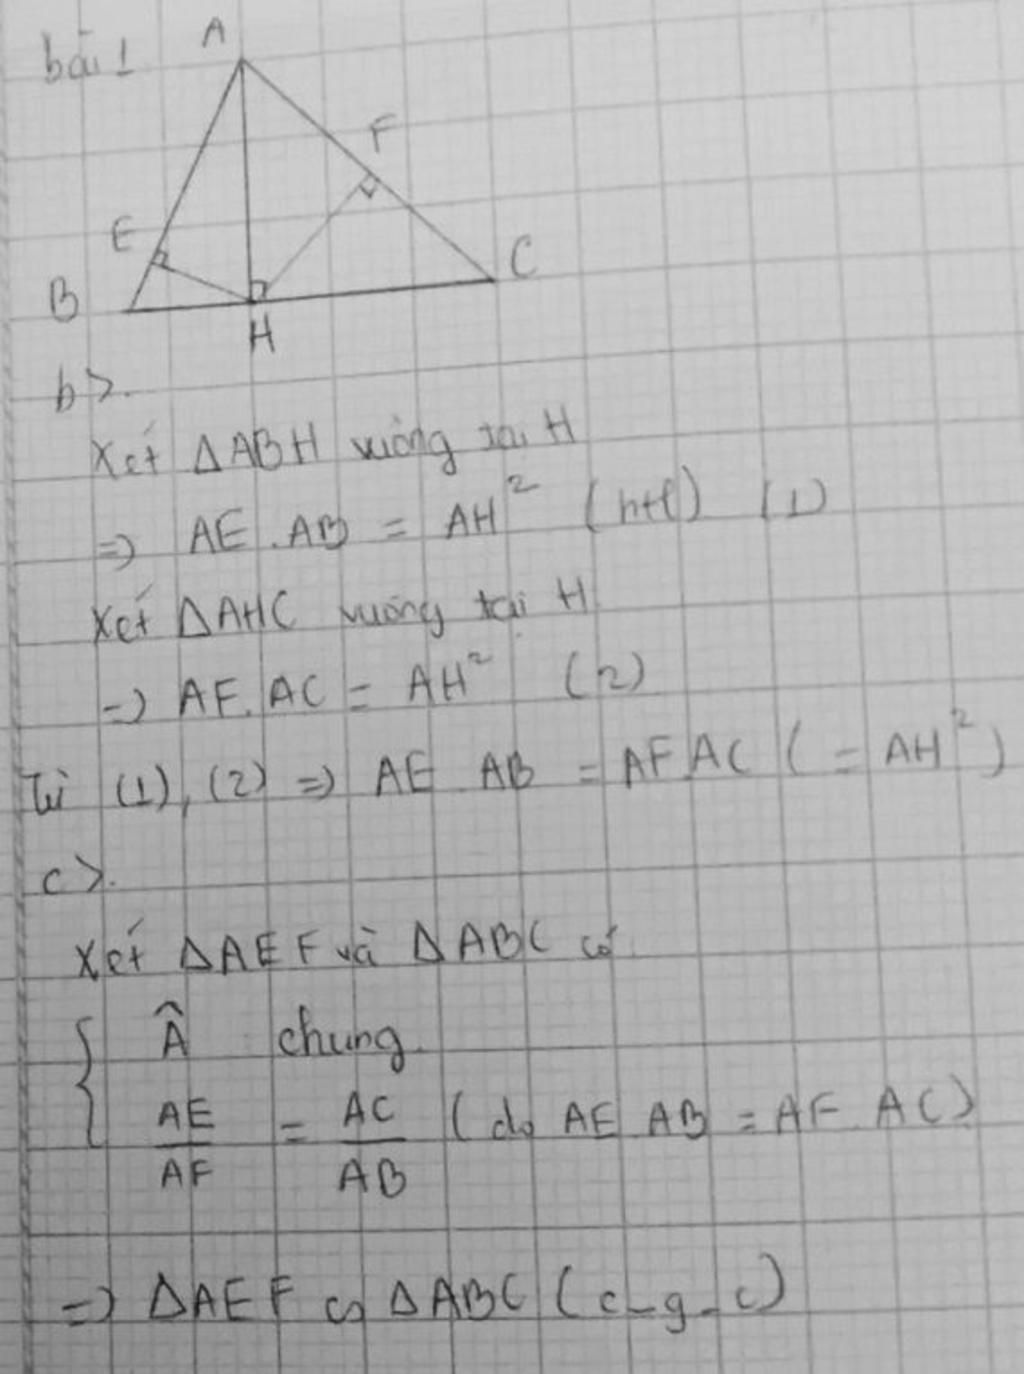 bài 1
A
F
E
C
B
H
b>.
Xét ΔABH vuông tại H
=> AE.AB = AH² (htl) (1)
Xét ΔAHC vuông tại H
=> AF.AC = AH² (2)
Từ (1), (2) => AE.AB = AF.AC (= AH²)
c>.
Xét ΔAEF và ΔABC có
{ Â chung.
AE/AF = AC/AB (do AE.AB = AF.AC)
=> ΔAEF ∽ ΔABC (c-g-c)